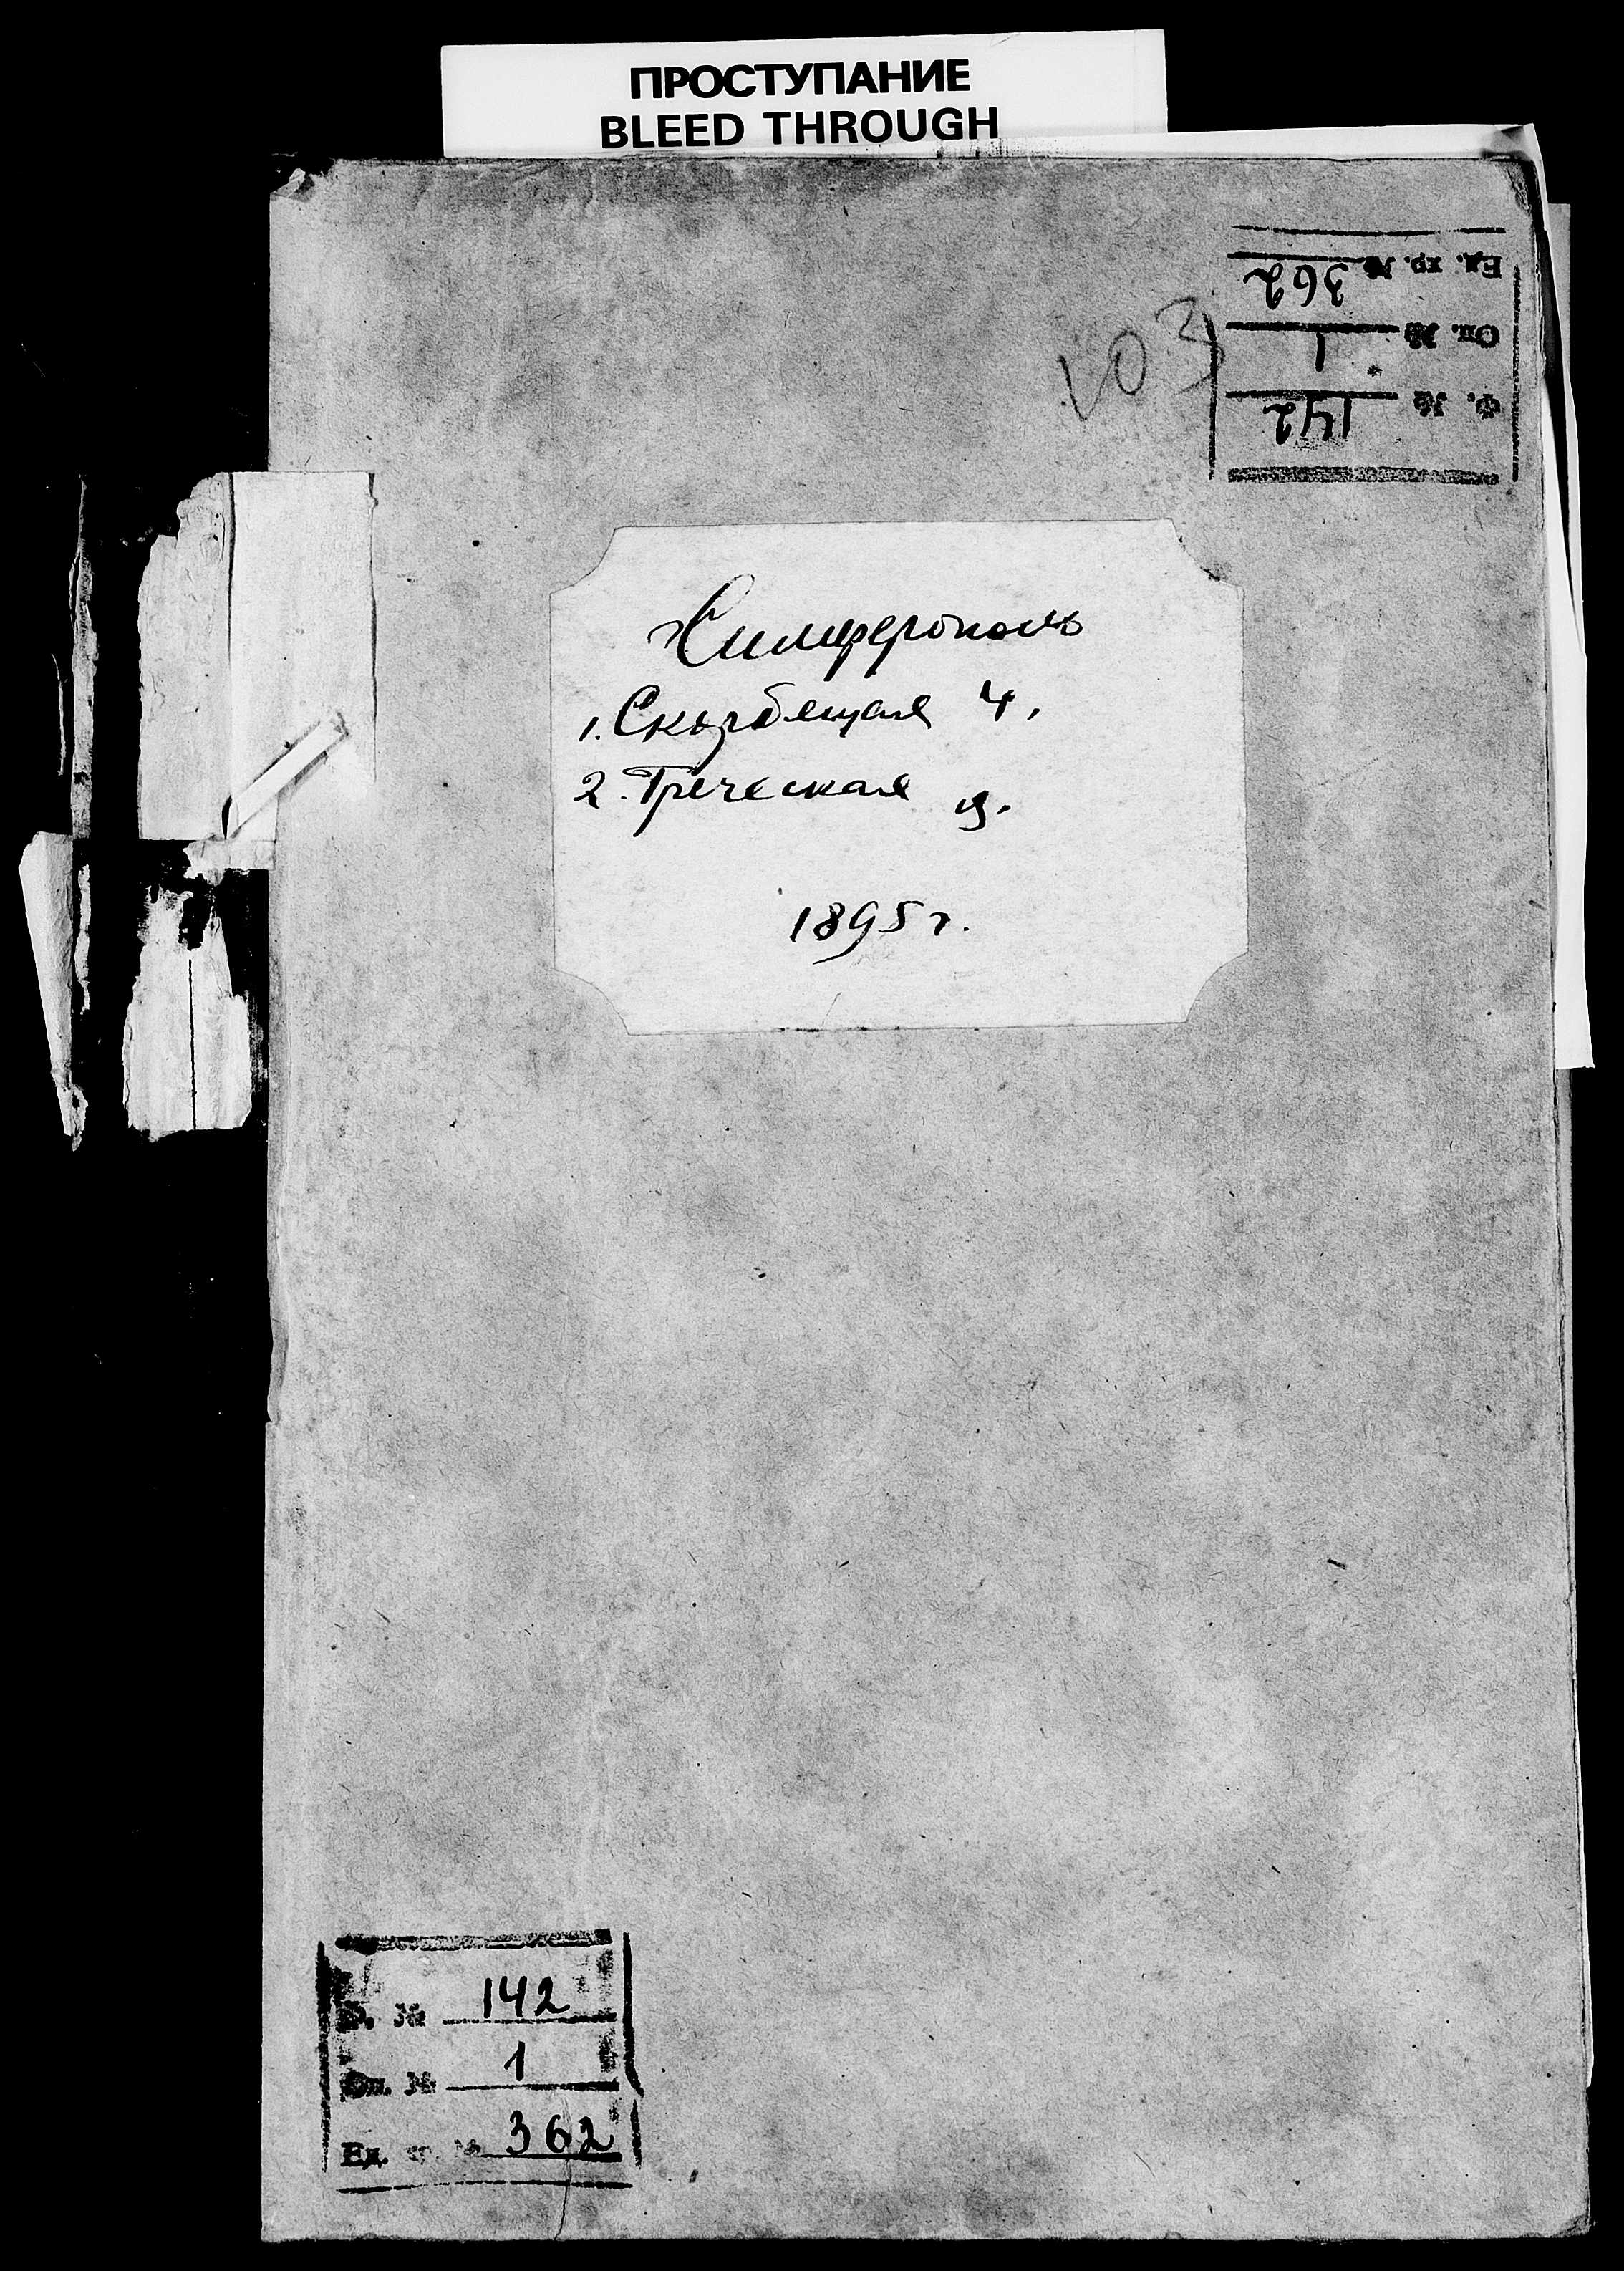 ПРОСТУПАНИЕ
BLEED THROUGH
Ед. хр. № 362
Оп. № 1
Ф. № 142
103
Симферополь
1. Скорбящая ц.
2. Греческая ц.
1895 г.
Ф. № 142
Оп. № 1
Ед. хр. № 362